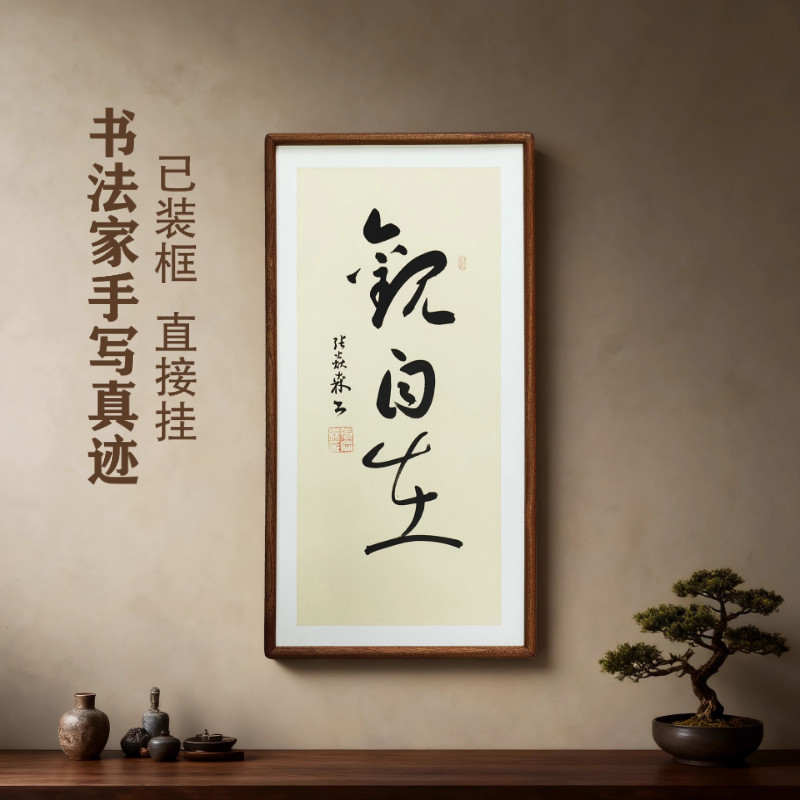 书法家手写真迹
已装框 直接挂
觀自在
张焱森书